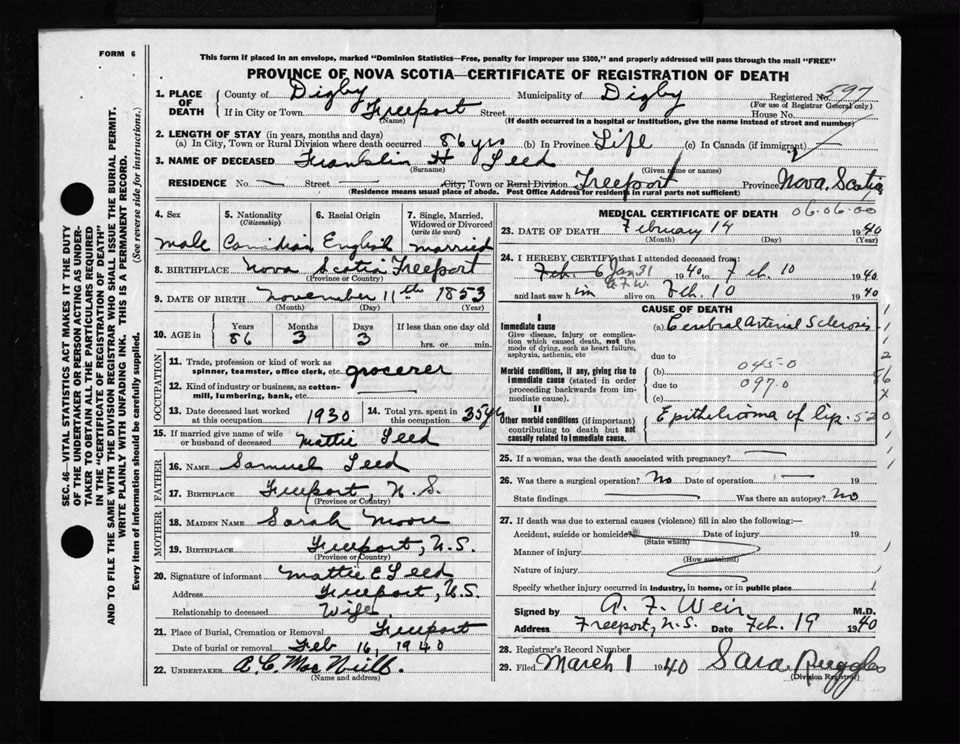 FORM 6
This form if placed in an envelope, marked "Dominion Statistics—Free, penalty for improper use $300," and properly addressed will pass through the mail "FREE"
PROVINCE OF NOVA SCOTIA—CERTIFICATE OF REGISTRATION OF DEATH
1. PLACE OF DEATH
County of Digby Municipality of Digby Registered No. 597
(For use of Registrar General only)
If in City or Town Freeport Street House No.
(Name) (If death occurred in a hospital or institution, give the name instead of street and number)
2. LENGTH OF STAY (in years, months and days)
(a) In City, Town or Rural Division where death occurred 86 yrs (b) In Province Life (c) In Canada (if immigrant)
3. NAME OF DECEASED Franklin H Leed
(Surname) (Given name or names)
RESIDENCE No. — Street — City, Town or Rural Division Freeport Province Nova Scotia
(Residence means usual place of abode. Post Office Address for residents in rural parts not sufficient)
4. Sex male
5. Nationality (Citizenship) Canidian
6. Racial Origin English
7. Single, Married, Widowed or Divorced (write the word) married
8. BIRTHPLACE Nova Scotia Freeport
(Province or Country)
9. DATE OF BIRTH November 11th 1853
(Month) (Day) (Year)
10. AGE in Years 86 Months 3 Days 3 If less than one day old
hrs. or min.
OCCUPATION
11. Trade, profession or kind of work as spinner, teamster, office clerk, etc. grocerer
12. Kind of industry or business, as cotton-mill, lumbering, bank, etc.
13. Date deceased last worked at this occupation 1930
14. Total yrs. spent in this occupation 35 yrs
15. If married give name of wife or husband of deceased Mattie Leed
FATHER
16. NAME Samuel Leed
17. BIRTHPLACE Freeport, N.S.
(Province or Country)
MOTHER
18. MAIDEN NAME Sarah Moore
19. BIRTHPLACE Freeport, N.S.
(Province or Country)
20. Signature of informant Mattie E Leed
Address Freeport, N.S.
Relationship to deceased Wife
21. Place of Burial, Cremation or Removal Freeport
Date of burial or removal Feb 16, 1940
22. UNDERTAKER A. C. MacNeill.
(Name and address)
MEDICAL CERTIFICATE OF DEATH 06.06.00
23. DATE OF DEATH February 14 1940
(Month) (Day) (Year)
24. I HEREBY CERTIFY that I attended deceased from:
Feb. 6 Jan 31 1940 to Feb. 10 1940
A.F.W.
and last saw him alive on Feb. 10 1940
CAUSE OF DEATH
I
Immediate cause (a) Cerebral Arterial Sclerosis
Give disease, injury or complication which caused death, not the mode of dying, such as heart failure, asphyxia, asthenia, etc
due to
Morbid conditions, if any, giving rise to immediate cause (stated in order proceeding backwards from immediate cause).
(b) 045-0
due to 097.0
(c)
II
Other morbid conditions (if important) contributing to death but not causally related to immediate cause.
Epithelioma of lip. 520
25. If a woman, was the death associated with pregnancy? —
26. Was there a surgical operation? No Date of operation — 19
State findings — Was there an autopsy? No
27. If death was due to external causes (violence) fill in also the following:—
Accident, suicide or homicide Date of injury 19
(State which)
Manner of injury
(How sustained)
Nature of injury
Specify whether injury occurred in industry, in home, or in public place
Signed by A. F. Weir M.D.
Address Freeport, N.S. Date Feb. 19 1940
28. Registrar's Record Number
29. Filed March 1 1940 Sara Ruggles
(Division Registrar)
SEC. 46—VITAL STATISTICS ACT MAKES IT THE DUTY
OF THE UNDERTAKER OR PERSON ACTING AS UNDER-
TAKER TO OBTAIN ALL THE PARTICULARS REQUIRED
IN THE "CERTIFICATE OF REGISTRATION OF DEATH"
AND TO FILE THE SAME WITH THE DIVISION REGISTRAR WHO SHALL ISSUE THE BURIAL PERMIT.
WRITE PLAINLY WITH UNFADING INK. THIS IS A PERMANENT RECORD.
Every item of information should be carefully supplied. (See reverse side for instructions.)